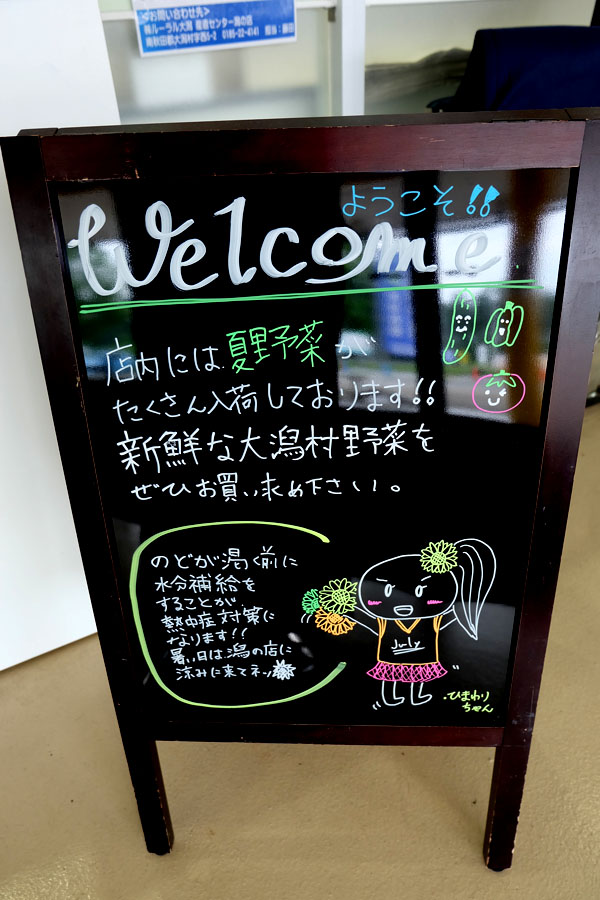 <お問い合わせ先>
㈱ルーラル大潟 産直センター潟の店
南秋田郡大潟村字西5-2 0185-22-4141 担当：
ようこそ!!
Welcome
店内には夏野菜が
たくさん入荷しております!!
新鮮な大潟村野菜を
ぜひお買い求め下さい。
のどが渇く前に
水分補給を
することが
熱中症対策に
なります!!
暑い日は潟の店に
涼みに来てネッ
July
ひまわり
ちゃん